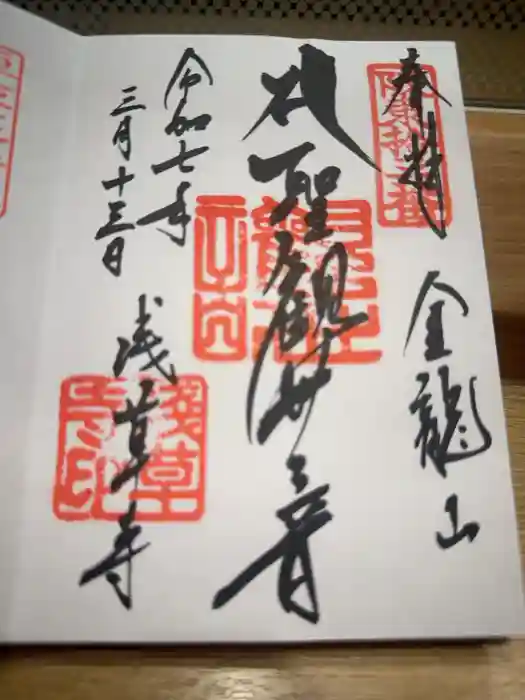 奉拝
金龍山
聖観世音
令和七年
三月十三日
浅草寺